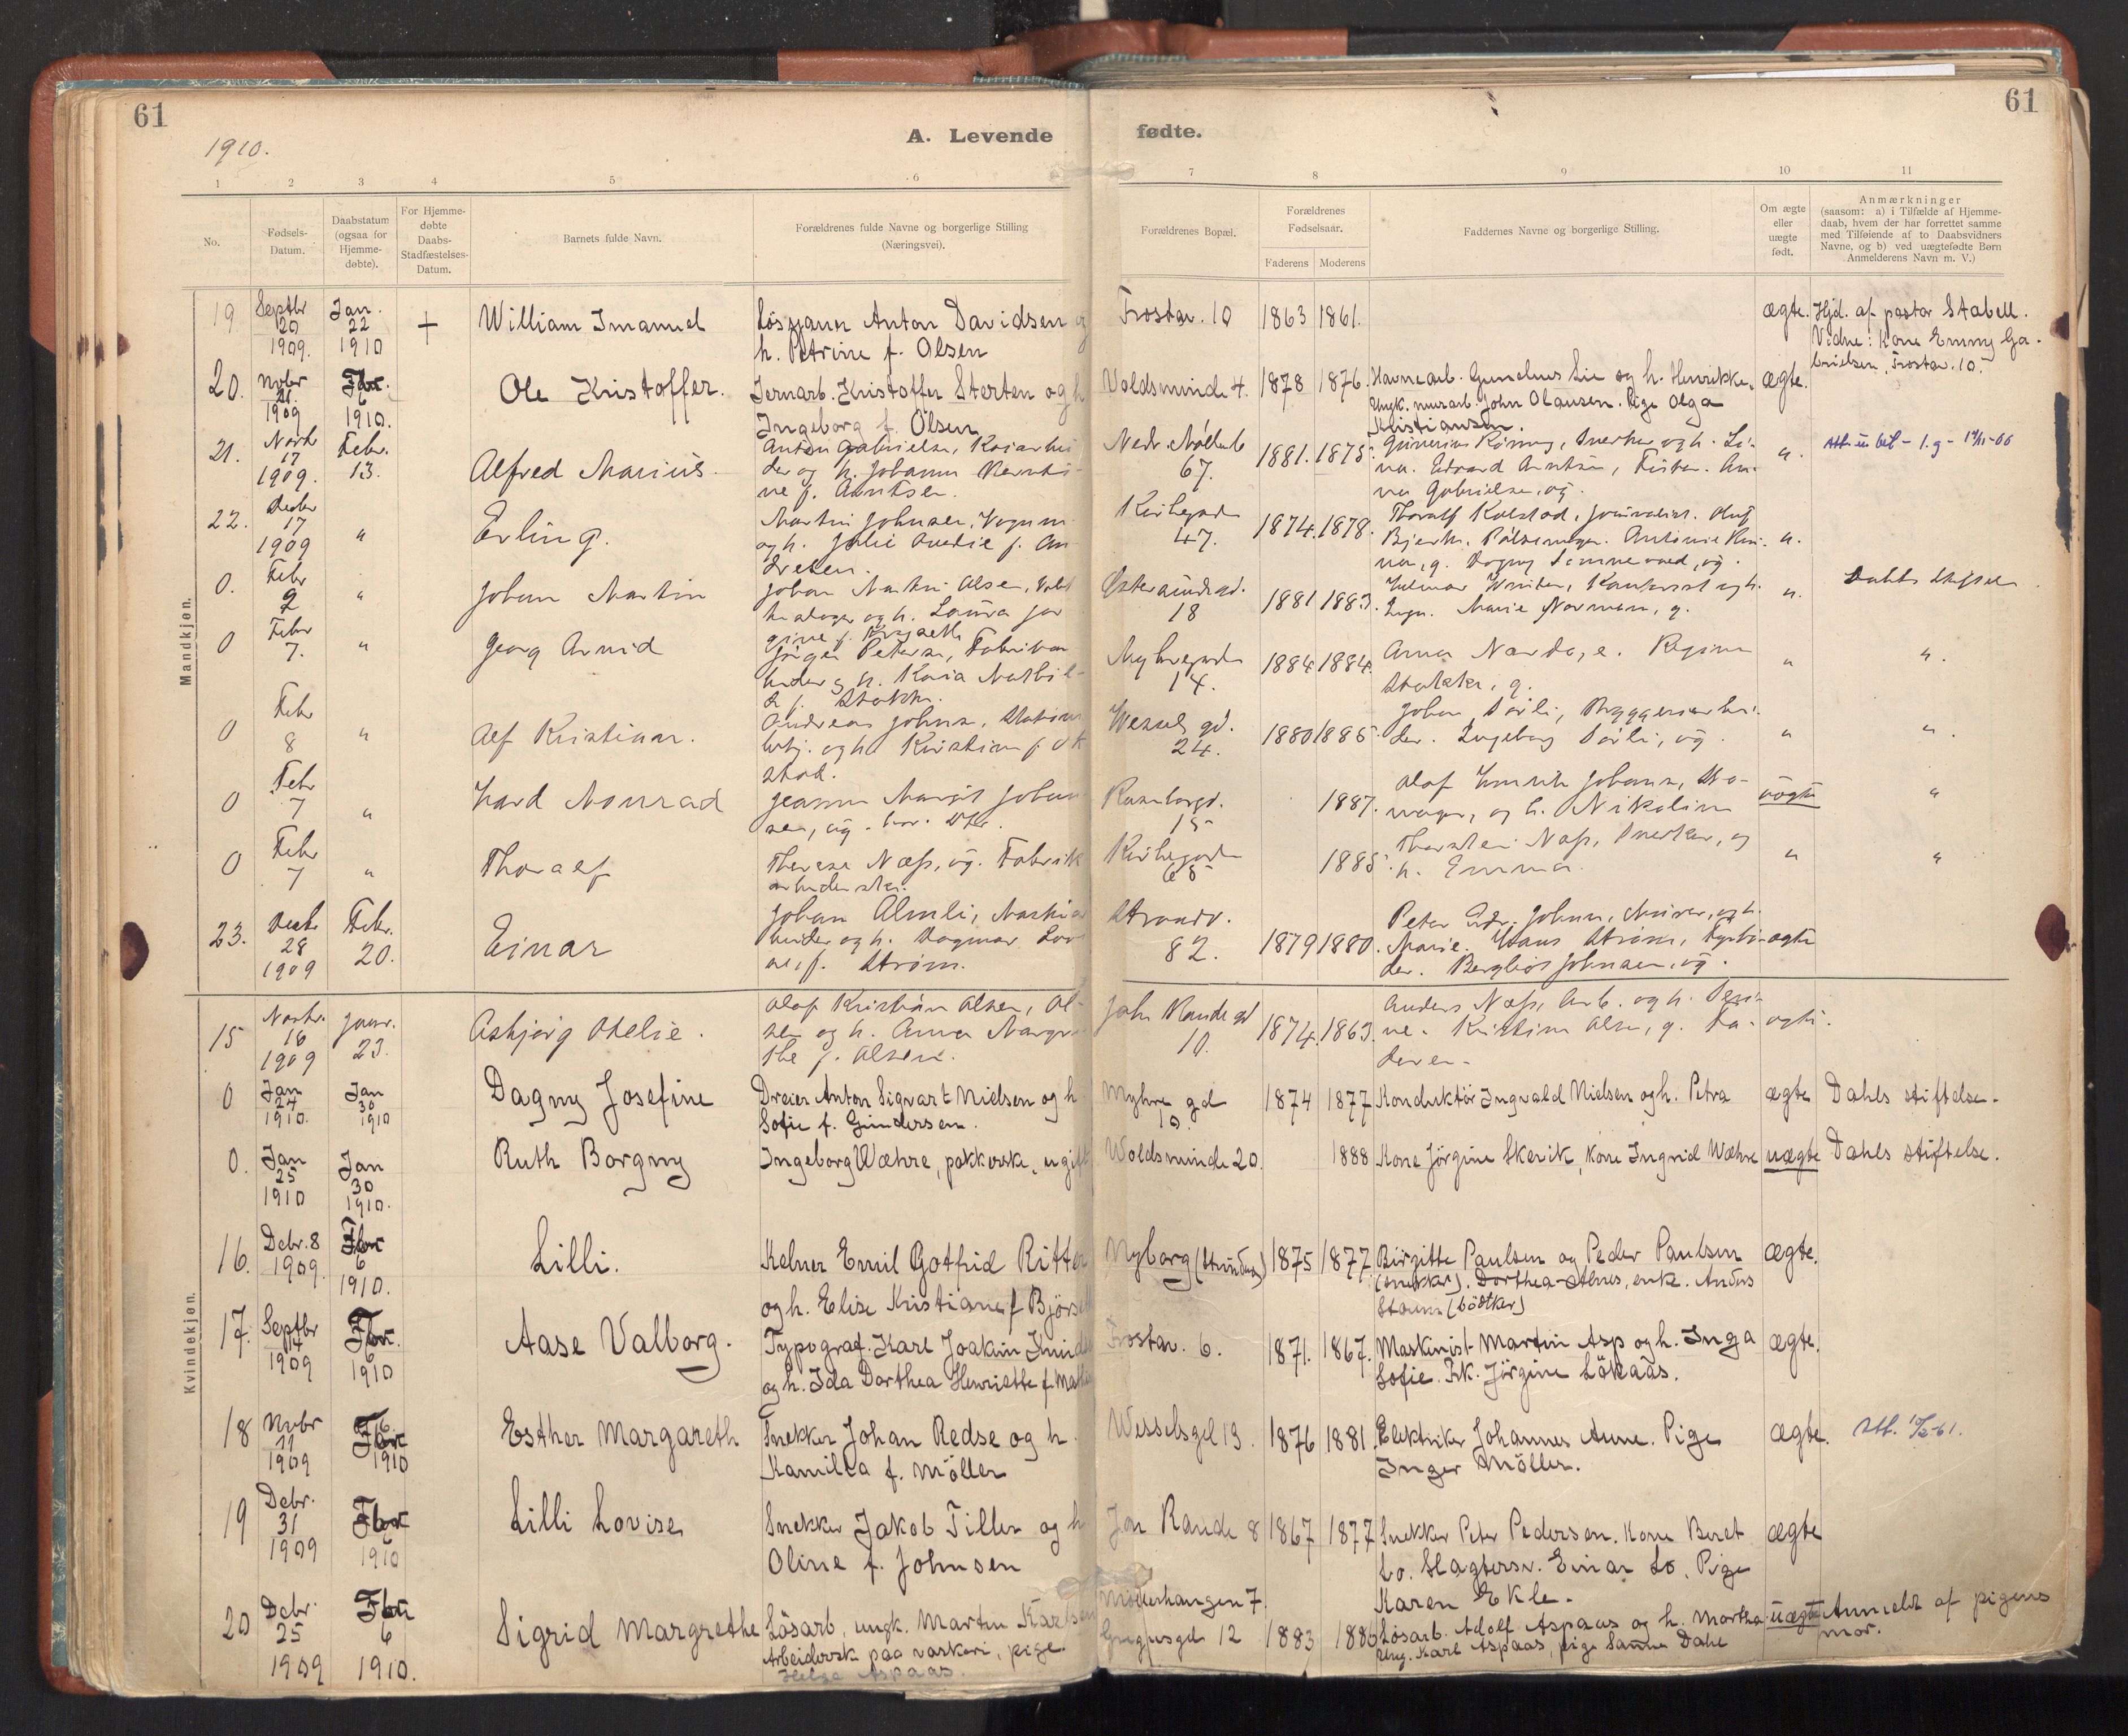 61
61
1910.
A. Levende fødte.
1 2 3 4 5 6 7 8 9 10 11
No.
Fødsels-
Datum.
Daabsdatum
(ogsaa for
Hjemme-
døbte).
For Hjemme-
døbte
Daabs-
Stadfæstelses-
Datum.
Barnets fulde Navn.
Forældrenes fulde Navne og borgerlige Stilling
(Næringsvei).
Forældrenes Bopæl.
Forældrenes
Fødselsaar.
Faderens Moderens
Faddernes Navne og borgerlige Stilling.
Om ægte
eller
uægte
født.
Anmærkninger
(saasom: a) i Tilfælde af Hjemme-
daab, hvem der har forrettet samme
med Tilføiende af to Daabsvidners
Navne, og b) ved uægtefødte Børn
Anmelderens Navn m. V.)
Mandkjøn.
19 Septbr 20 1909. Jan. 22 1910 + William Imanuel
Løsmann Anton Davidsen og
h. Petrine f. Olsen
Trostav. 10 1863 1861. ægte.
Hjd. af pastor Stabell.
Vidne: Kone Emmy Ga-
brielsen, Trostav. 10.
20. Nvbr 21. 1909 Fbr. 6 1910. Ole Kristoffer.
Jernarb. Kristoffer Storten og h
Ingeborg f. Olsen
Voldsminde 4. 1878 1876.
Havnearb. Gunelius Lie og h. Henrikke.
Ungk. murarb. John Olausen. Pige Olga
Kristiansen.
ægte.
21. Novbr 17 1909 Febr. 13. Alfred Marius.
Anton Gabrielsen, Kaiarbei
der og h. Johanna
ne f. Arntsen.
Nedr. Møllenb
67. 1881. 1875.
Edvard Arntsen, An-
na Gabrielsen, ug.
"
22. Decbr 17 1909 " Erling.
Martin Johnsen, Vognm.
og h. Julie f. An-
dresen.
Kirkegaden
47. 1874. 1878.
Thoralf Kolstad, journalist. Oluf
Bjerk, Pølsemager. Antonie
".
0. Febr 9 " Johan Martin
Johan Martin Olsen,
og h. Laura Jør
gine f. Krogseth
18 1881 1883.
Marie Normann, g.
".
Dahls Stiftelse
0 Febr 7. " Georg Arvid
Jørgen Petersen, Fabrikar
beider og h. Karia Mathil-
de f. Stokke.
Myhregaden
14. 1884 1884.
Anna Nardo, e. Regine
Stokke, g.
" ".
0 Febr 8 " Alf Kristian.
Andreas Johnsen, Stations
betj. og h. Kristine f. Ok
stad.
Wessels gd.
24. 1880 1885.
Johan Dørli, Bryggeriarbei-
der. Ingeborg Dørli, ug.
" ".
0 Febr 7 " Hard Monrad
Jeanna Margit Johan
sen, ug.
Rosenborgd.
15 1887.
Olaf Henrik Johansen, Sko-
mager, og h. Nikoline
uægte "
0 Febr 7 " Thoralf
Therese Næss, ug. Fabrik
arbeiderske.
Kirkegaden
65 1885.
Thorstein Næss, Snekker, og
h. Emma.
" "
23. Decbr 28 1909 Febr. 20. Einar
Johan Almli, Maskinar
beider og h. Dagmar Lov
ise, f. Strøm.
Strandv.
82. 1879 1880.
Peter Edv. Johnsen, Murer, og h.
Marie. Hans Strøm,
Bergliot Johnsen, ug.
ægte
Kvindekjøn.
15 Novbr. 16 1909 Janr. 23. Asbjørg Otelie.
Olaf Kristian Olsen,
og h. Anna Margre
the f. Olsen.
John Randes gd
10. 1874. 1863.
Anders Næss, Arb. og h.
Kristine Olsen, g. Fa-
deren.
ægte.
0 Jan 24 1910. Jan 30 1910 Dagny Josefine
Dreier Anton Sigvart Nielsen og h
Sofie f. Gundersen.
Myhre gd
10 1874 1877 Konduktør Ingvald Nielsen og h. Petra ægte Dahls stiftelse.
0. Jan 25 1910 Jan 30 1910. Ruth Borgny
Ingeborg Wæhre, pakkerske, ugift
Voldsminde 20. 1888 Kone Jørgine Skevik, Kone Ingrid Wæhre uægte Dahls stiftelse.
16. Debr. 8 1909. Fbr 6 1910. Lilli.
Kelner Emil Gotfrid Ritter
og h. Elise Kristiane f Bjørse
Nyborg (Strinden) 1875 1877
Birgitte Paulsen og Peder Paulsen
(snekker). Dorthea Alnes, enke. Anders
Staum (bødtker)
ægte.
17. Septbr 14 1909 Fbr. 6 1910 Aase Valborg.
Typograf Karl Joakim
og h. Ida Dorthea Henriette f. Mathi
Trostav. 6. 1871. 1867.
Maskinist Martin Asp og h. Inga
Sofie. Frk. Jørgine Løkaas.
ægte.
18 Nvbr 11 1909 Fbr 6 1910 Esther Margareth
Snekker Johan Redse og h.
Kamilla f. Møller
Wesselsgd 13. 1876 1881.
Elektriker Johannes Aune. Pige
Inger Møller.
ægte.
19 Debr. 31 1909 Fbr 6 1910 Lilli Lovise
Snekker Jakob Tiller og h
Oline f. Johnsen
Jon Rande 8 1867 1877
Snekker Peter Pedersen. Kone Beret
Lo. Slagtersv. Einar Lo. Pige
Karen Ekle.
ægte
20 Debr. 25 1909 Fbr 6 1910. Sigrid Margrethe
Løsarb, ungk. Martin Karlsen
Arbeidersk paa vaskeri, pige
Helga Aspaas.
Møllerhaugen 7.
Gregusgd 12 1883 1886
Løsarb. Adolf Aspaas og h. Martha
Ung. Karl Aspaas, pige Sanna Dahl
uægte Anmeldt af pigens
mor.